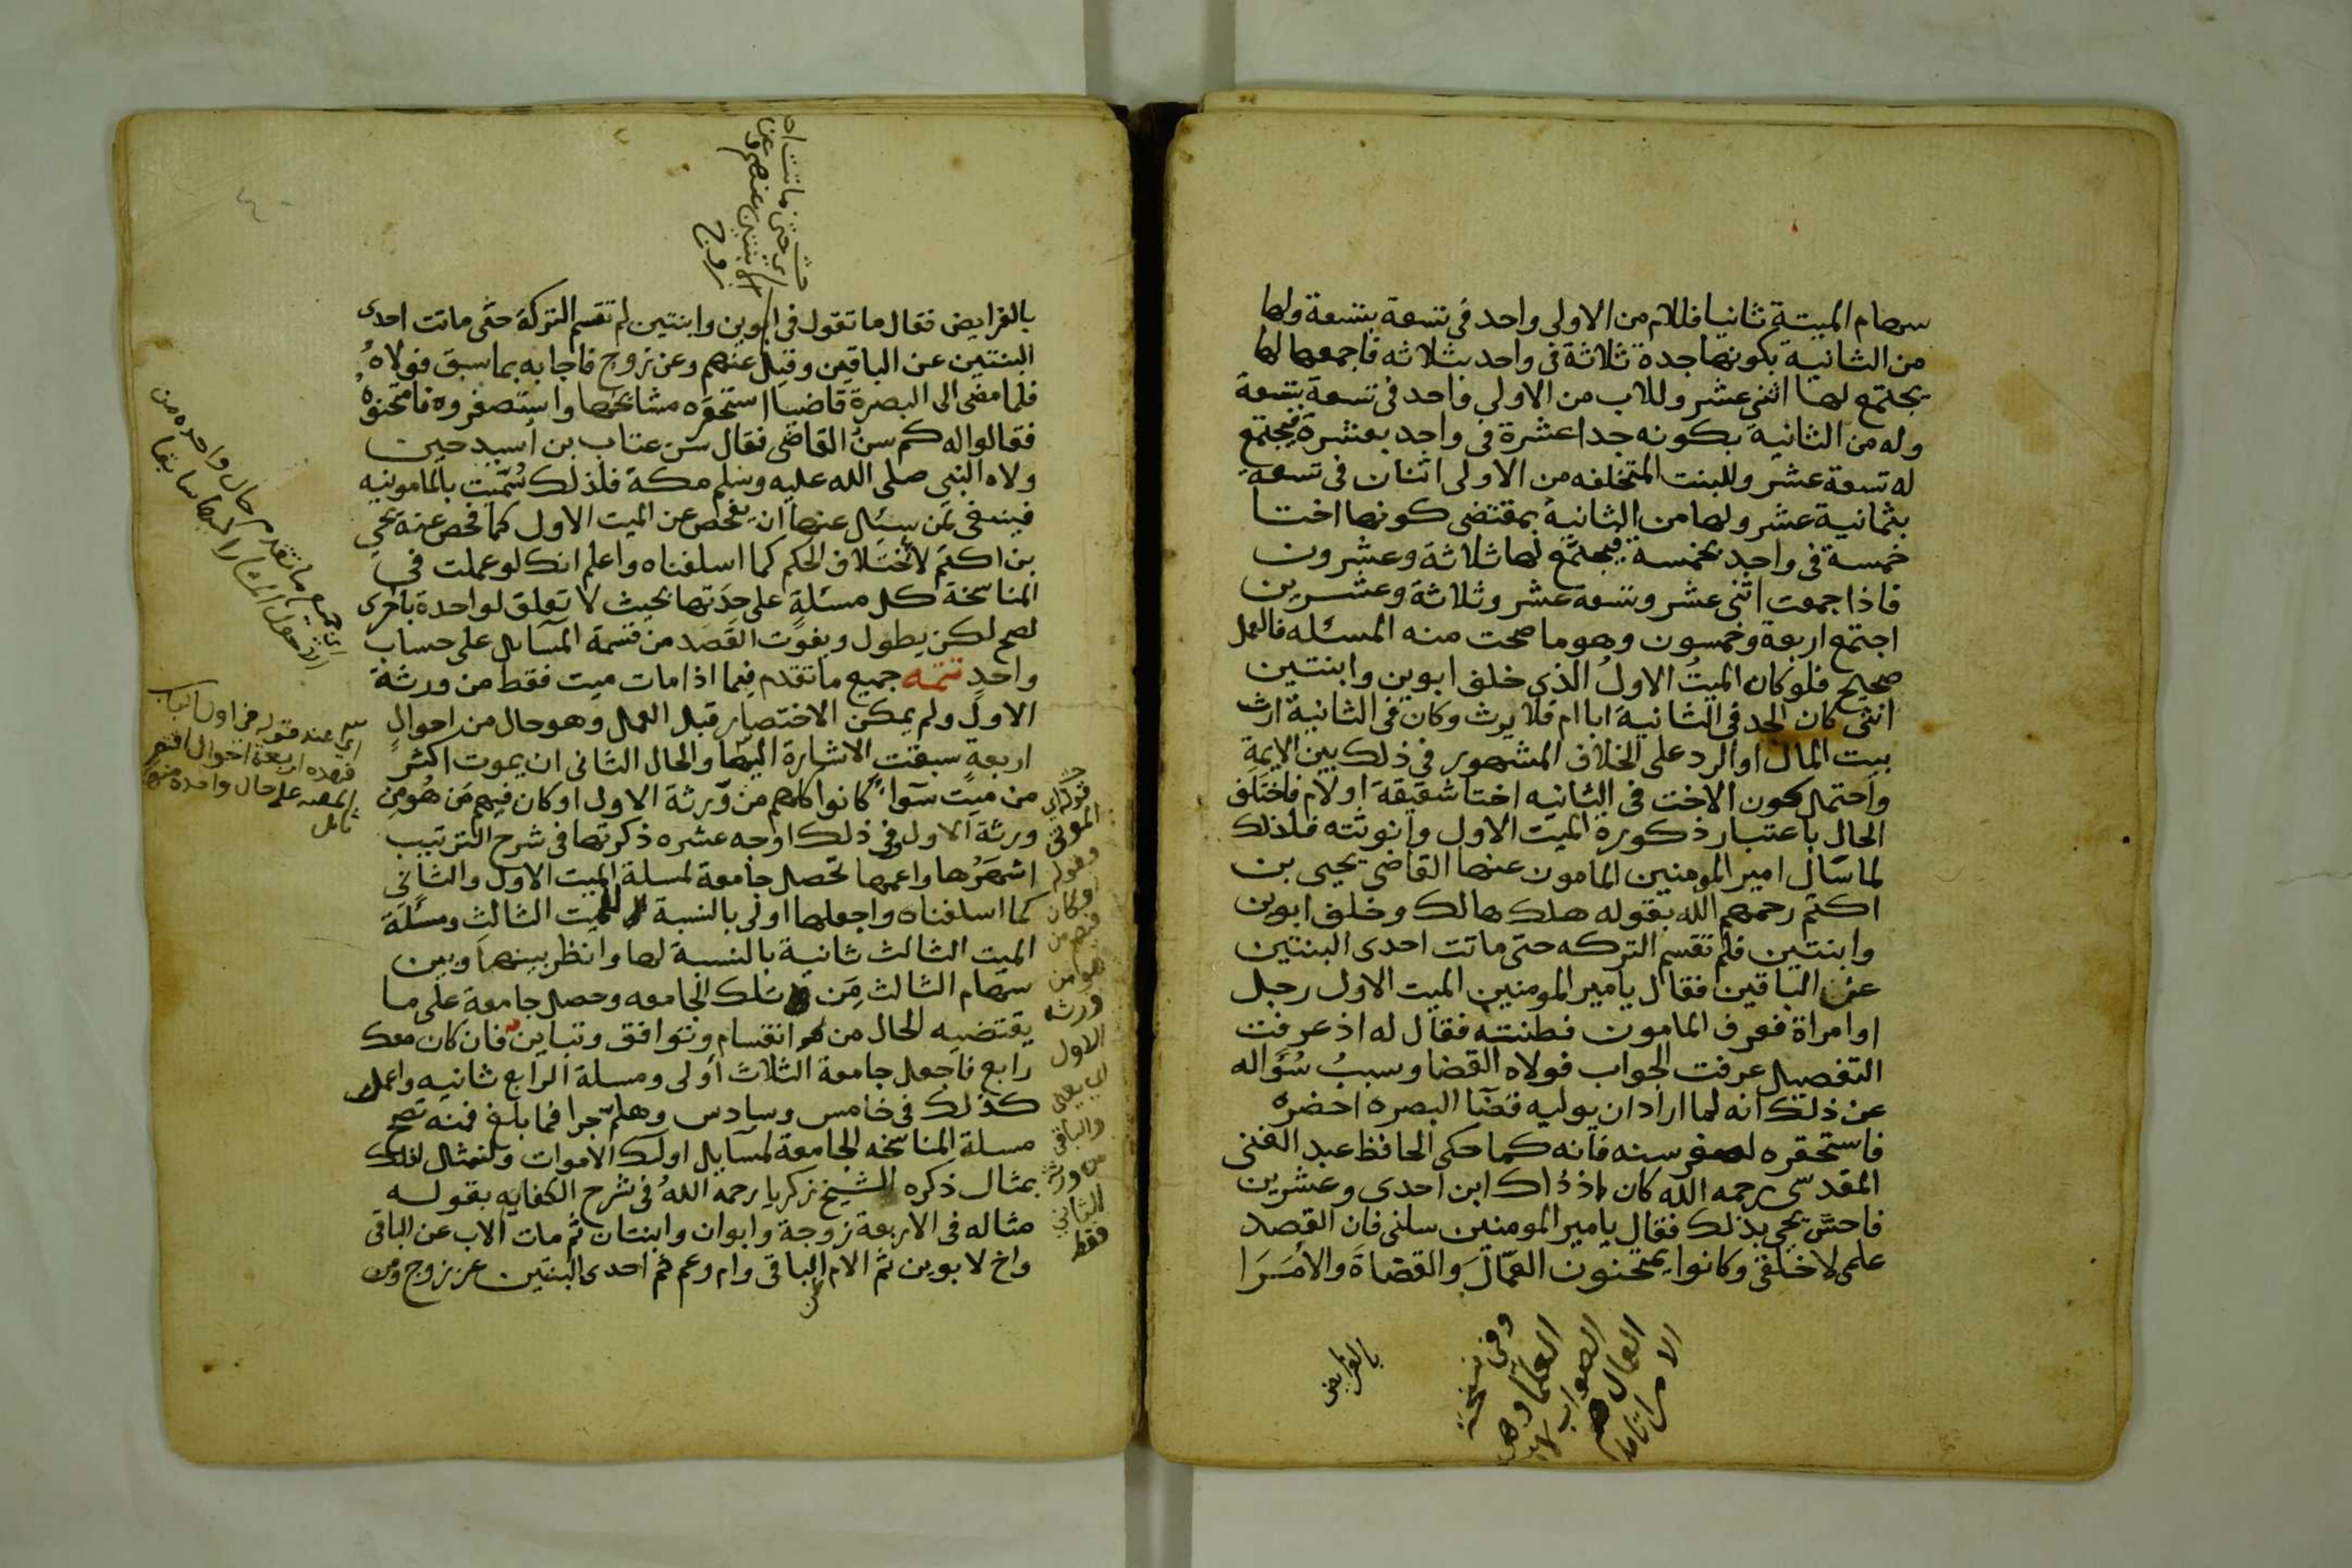 سهام الميتة ثانيا فللام من الاولى واحد فى تسعة بتسعة ولها
من الثانية بكونها جدة ثلاثة فى واحد بثلاثه فاجمعها لها
يجتمع لها اثنى عشر وللاب من الاولى واحد فى تسعة بتسعة
وله من الثانية بكونه جدا عشرة فى واحد بعشرة فيجتمع
له تسعة عشر وللبنت المتخلفه من الاولى اثنان فى تسعة
بثمانية عشر ولها من الثانية بمقتضى كونها اختا
خمسة فى واحد بخمسة فيجتمع لها ثلاثة وعشرون
فاذا جمعت اثنى عشر وتسعة عشر وثلاثة وعشرين
اجتمع اربعة وخمسون وهو ما صحت منه المسئله فالعمل
صحيح فلو كان الميتُ الاولُ الذى خلف ابوين وابنتين
انثى كان الجد فى الثانية ابا ام فلا يرث وكان فى الثانية ارث
بيت المال او الرد على الخلاف المشهور فى ذلك بين الايمة
واحتمل كون الاخت فى الثانيه اختا شقيقة او لام فاختلف
الحال باعتبار ذكورة الميت الاول وانوثته فلذلك
لما سال امير المومنين المامون عنها القاضى يحيى بن
اكثم رحمهم الله بقوله هلك هالك وخلف ابوين
وابنتين فلم تقسم التركه حتى ماتت احدى البنتين
عن الباقين فقال يامير المومنين الميت الاول رجل
او امراة فعرف المامون فطنته فقال له اذ عرفت
التفصيل عرفت الجواب فولاه القضا وسببُ سُؤاله
عن ذلك انه لما اراد ان يوليه قضا البصره احضره
فاستحقره لصغر سنه فانه كما حكى الحافظ عبد الغنى
المقدسى رحمه الله كان اذ ذاك ابن احدى وعشرين
فاحسَّ يحيى بذلك فقال يامير المومنين سلنى فان القصد
علمى لا خلقى وكانوا يمتحنون العمّالَ والقضاةَ والامُرَا
وفى نسخة
العلما وهى
الصواب لان
العمال هم
الامرا تامل
بالفرايض
اى حتى ماتت
البنتين عنهم وعن
زوج
بالفرايض فقال ما تقول فى ابوين وابنتين لم تقسم التركة حتى ماتت احدى
البنتين عن الباقين وقيل عنهم وعن زوج فاجابه بما سبق فولاهُ
فلما مضى الى البصرة قاضيا استحقره مشايخها واستصغروه فامتحنوهُ
فقالوا له كم سن القاضى فقال سن عتاب بن اسيد حين
ولاه النبى صلى الله عليه وسلم مكة فلذلك سُمّيت بالمامونيه
فينبغى لمن يسئل عنها ان يفحص عن الميت الاول كما فحص عنه يحيى
بن اكثم لاختلاف الحكم كما اسلفناه واعلم انك لو عملت فى
المناسخة كل مسئلةٍ على حِدَتها بحيث لا تعلق لواحدة باخرى
لصح لكن يطول ويفوت القصد من قسمة المسايل على حساب
واحدٍ تتمه جميع ما تقدم فيما اذا مات ميت فقط من ورثة
الاول ولم يمكن الاختصار قبل العمل وهو حال من احوالٍ
اربعةٍ سبقت الاشارة اليها والحال الثانى ان يموت اكثر
من ميت سوآءً كانوا كلهم من ورثة الاول او كان فيهم مَن هُو مِن
ورثة الاول وفى ذلك اوجه عشره ذكرتها فى شرح الترتيب
اشهَرُها واعمها تحصل جامعة لمسلة الميت الاول والثانى
كما اسلفناه واجعلها اولى بالنسبة للميت الثالث ومسئلة
الميت الثالث ثانية بالنسبة لها وانظر بينهما وبين
سهام الثالث مِن تلك الجامعه وحصل جامعة على ما
يقتضيه الحال من انقسام وتوافق وتباين فان كان معك
رابع فاجعل جامعة الثلاث أولى ومسلة الرابع ثانيه واعمل
كذلك فى خامس وسادس وهلم جرا فما بلغ فمنه تصح
مسلة المناسخه الجامعة لمسايل اولئك الاموات ولنمثل لذلك
بمثال ذكره الشيخ زكريا رحمه اللهُ فى شرح الكفايه بقوله
مثاله فى الاربعة زوجة وابوان وابنتان ثم مات الاب عن الباقى
واخ لابوين ثم الام عن الباقى وام وعم ثم احدى البنتين عن زوج ومن
قوله اى
الموتى
وقوله
او كان
فيهم من
هو من
ورثة
الاول
اى يعنى
والباقى
من ورثة
الثانى
فقط
جميع ما تقدم حال واحده من
اى عند قوله فى اول الباب
فهذه اربعة احوال اقتصر
المصنف على حال واحدة منها
تامل